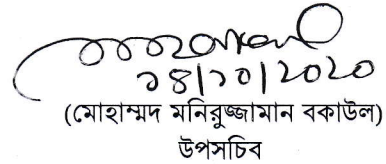 ১৪/১০/২০২০
(মোহাম্মদ মনিরুজ্জামান বকাউল)
উপসচিব